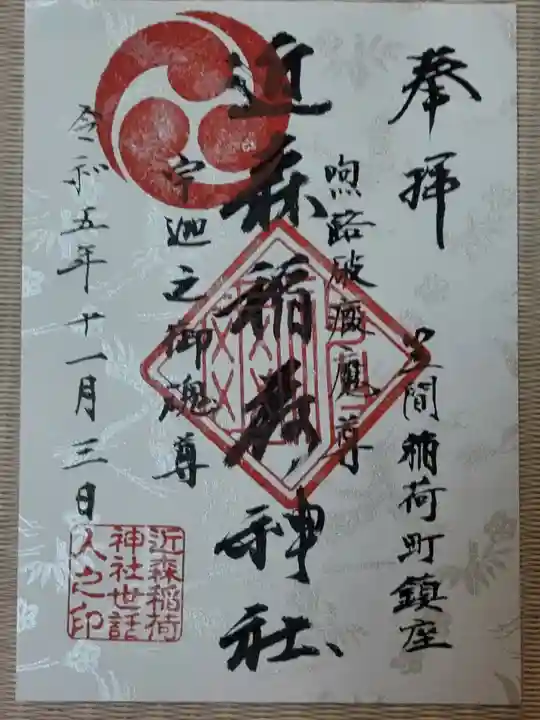 奉拝
笠間稲荷町鎮座
喣路破癜鳳尊
近森稲荷神社
宇迦之御魂尊
令和五年十一月三日
近森稲荷
神社世話
人之印